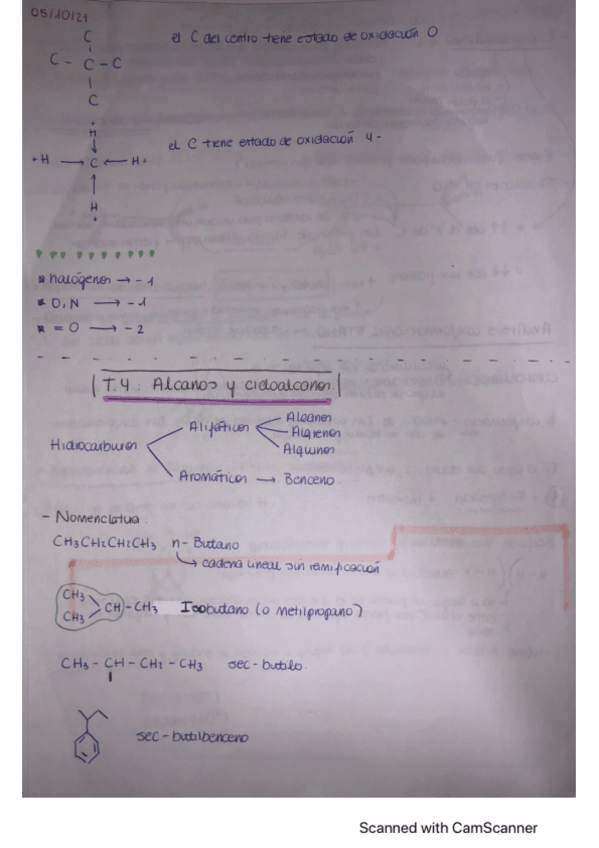 05/10/21
C
C - C - C
C
el C del centro tiene estado de oxidación 0
H
+H → C ← H+
H
el C tiene estado de oxidación 4-
* halógenos → -1
* O, N → -1
* = O → -2
T.4: Alcanos y cicloalcanos.
Hidrocarburos
Alifáticos
Alcanos
Alquenos
Alquinos
Aromáticos → Benceno
- Nomenclatua:
CH3CH2CH2CH3 n-Butano
→ cadena lineal sin ramificación
CH3
CH3
CH-CH3 Isobutano (o metilpropano)
CH3 - CH - CH2 - CH3 sec-butilo.
sec-butilbenceno
Scanned with CamScanner